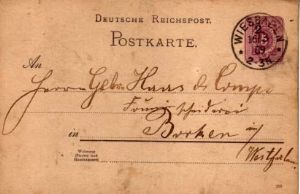 DEUTSCHE REICHSPOST.
POSTKARTE.
WIESBADEN
2-3N
An
Herren Gebr. Haas & Comp.
in Borken i/
Westfalen
Wohnung
(Strasse und
Hausnummer)